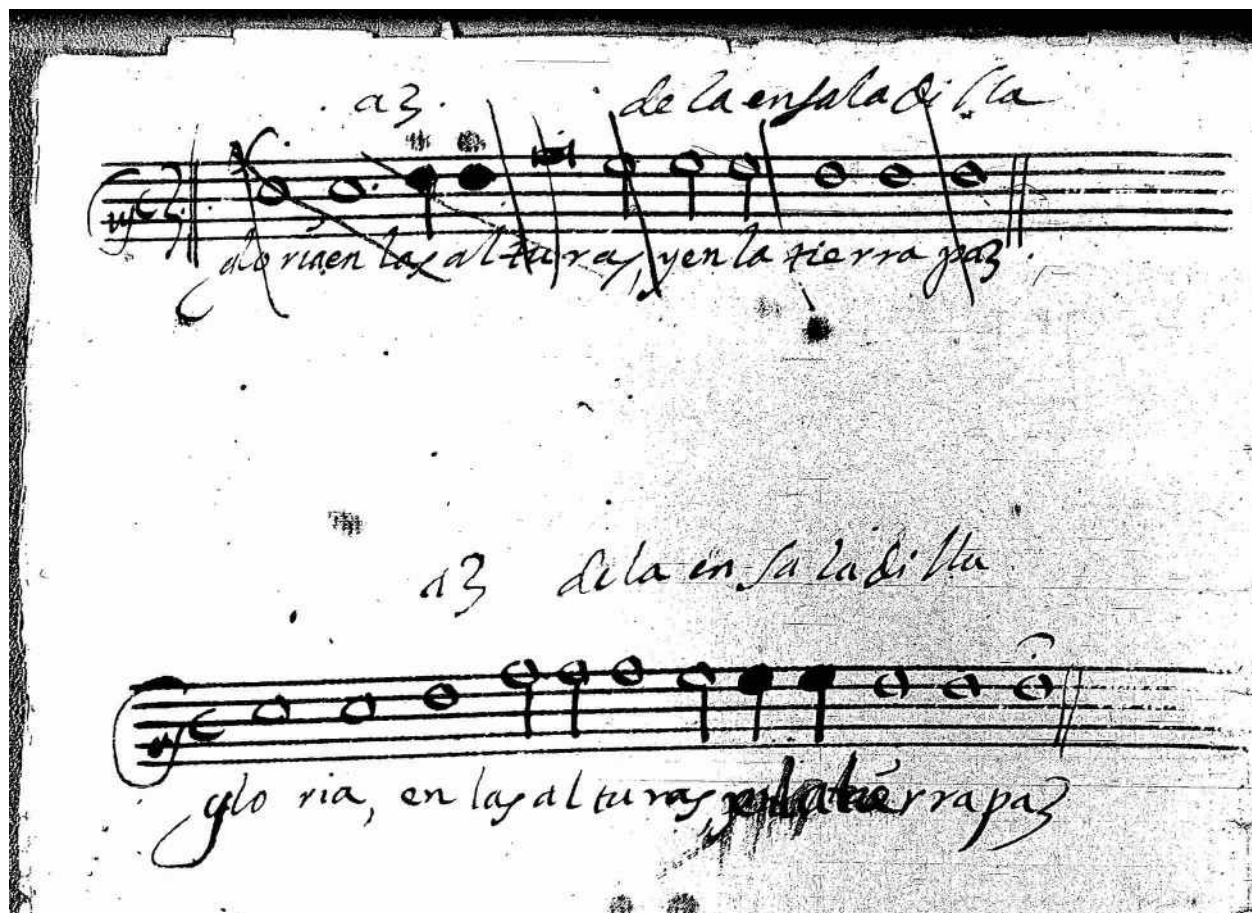 a 3. de la ensaladilla
gloria en las alturas, y en la tierra paz.
a 3 de la ensaladilla
gloria, en las alturas, y en la tierra paz